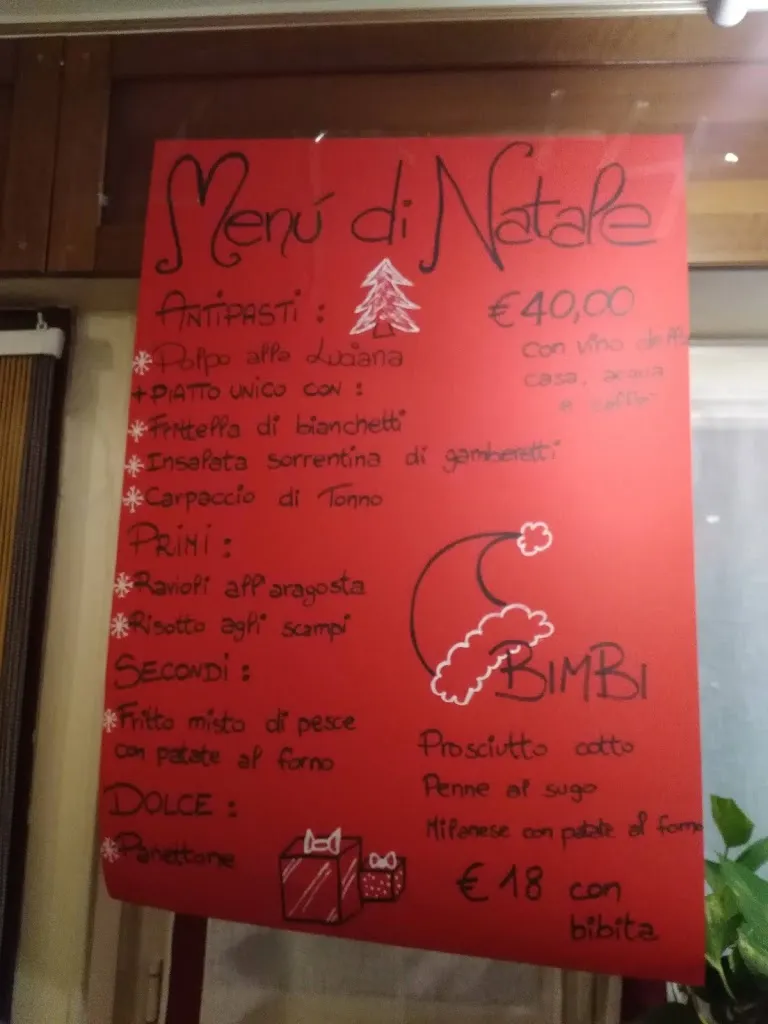 Menú di Natale
ANTIPASTI :
€40,00
Polpo alla Luciana
con vino della
casa, acqua
e caffè
+ PIATTO UNICO CON :
Frittella di bianchetti
Insalata sorrentina di gamberetti
Carpaccio di Tonno
PRIMI :
Ravioli all'aragosta
Risotto agli scampi
SECONDI :
Fritto misto di pesce
con patate al forno
DOLCE :
Panettone
BIMBI
Prosciutto cotto
Penne al sugo
Milanese con patate al forno
€ 18 con
bibita